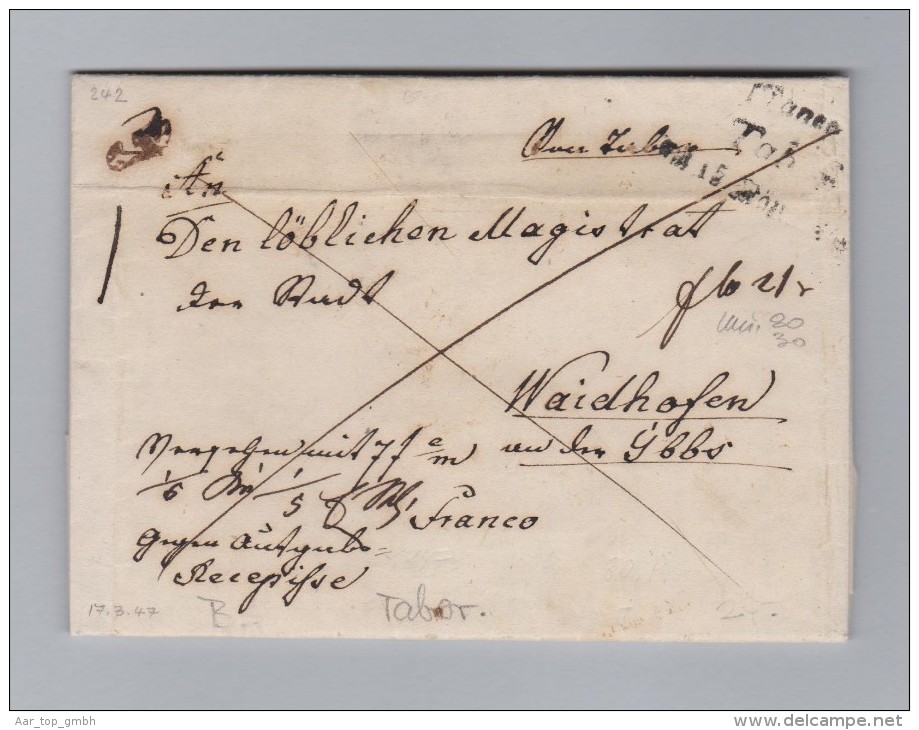 242
Franco
Von Tabor
Tab
15
An
Den löblichen Magistrat
der Stadt
21
20
30
Waidhofen
an der Ybbs
Vergehen mit 77
Franco
Gegen Aufgabs=
Recepisse
17.3.47
Tabor.
Aar_top_gmbh
www.delcampe.net